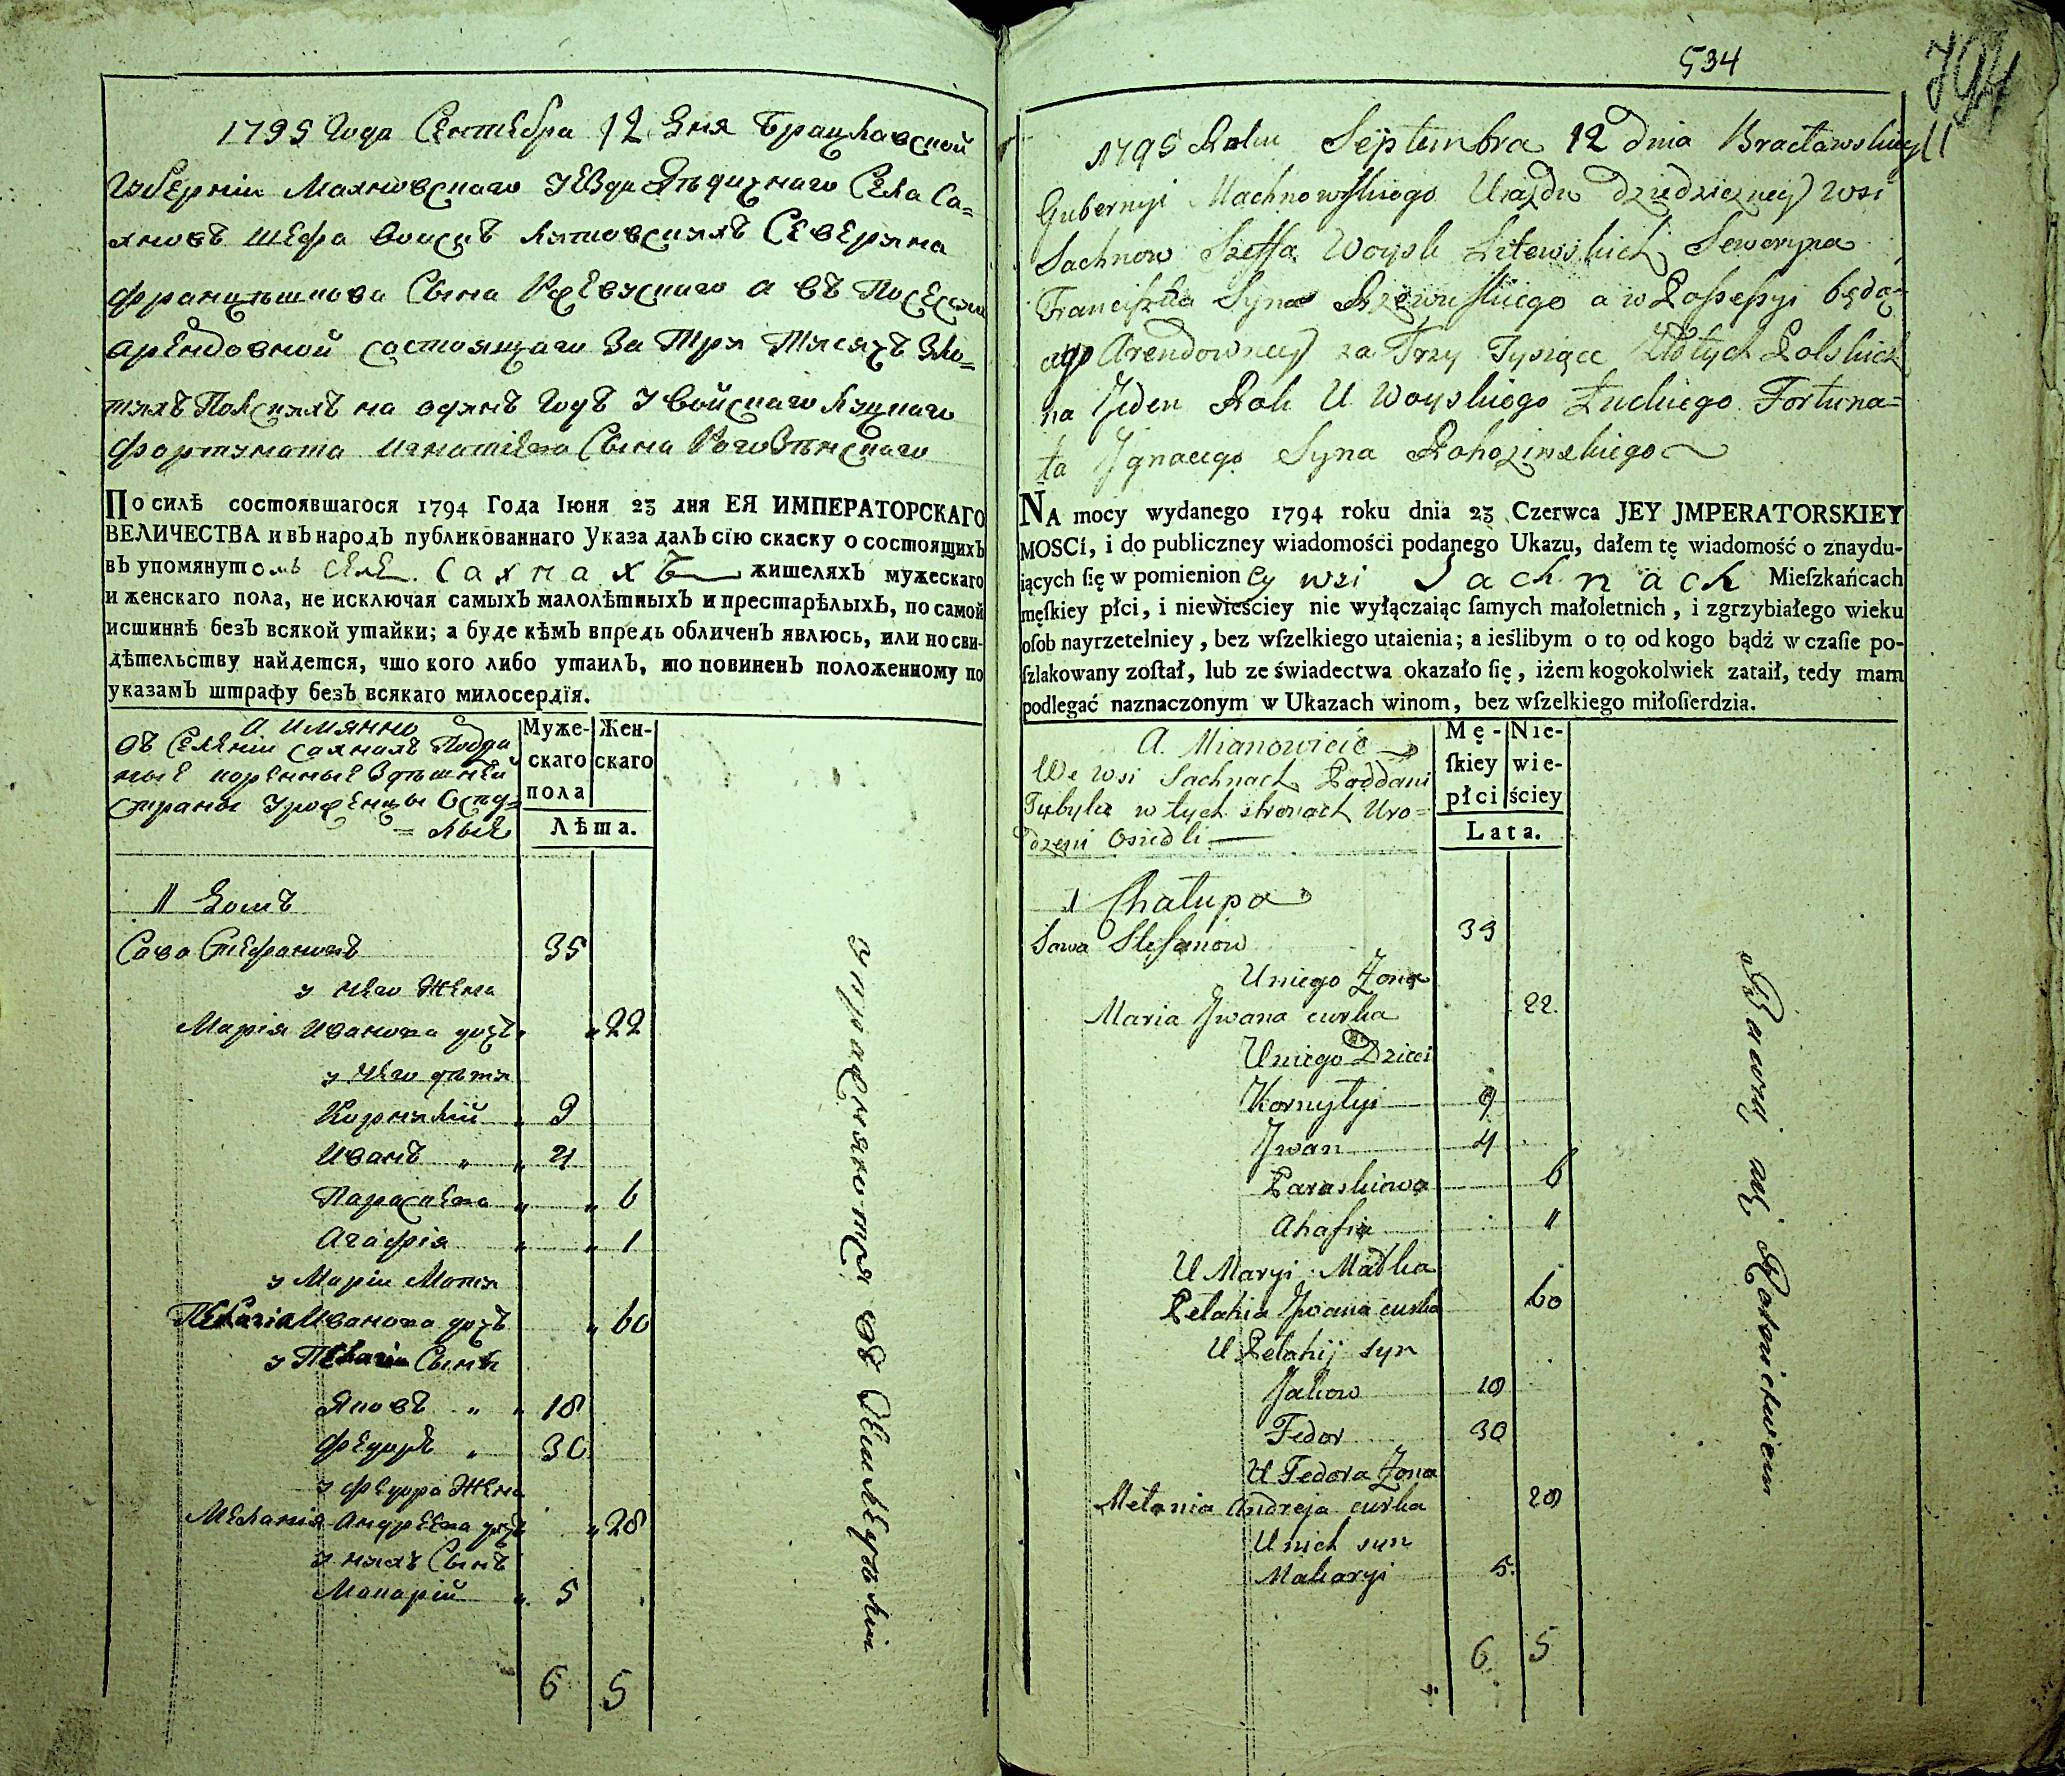 1795 Года Сентебра 12 дня Брацлавской
Губерніи Махновскаго уезда дѣдичнаго Села Са=
хновъ шефа воискъ литовскихъ Северина
францѣшкова Сына Ржевускаго а въ Посесіи
арендовной состоящаго за Три Тисячъ Зло=
тихъ Полскихъ на одинъ Годъ у войскаго луцкаго
фортуната игнатіева Сина Рогозѣнскаго
По силѣ состоявшагося 1794 Года Іюня 23 дня ЕЯ ИМПЕРАТОРСКАГО
ВЕЛИЧЕСТВА и въ народъ публикованнаго Указа далъ сїю скаску о состоящихъ
въ упомянутомъ селе Сахнахъ жишеляхъ мужескаго
и женскаго пола, не исключая самыхъ малолѣтныхъ и престарѣлыхъ, по самой
исшиннѣ безъ всякой утайки; а буде кѣмъ впредь обличенъ явлюсь, или но сви-
дѣтельству найдется, чшо кого либо утаилъ, то повиненъ положенному по
указамъ штрафу безъ всякаго милосердїя.
а имянно
въ Селеніи Сахнахъ Подда
ные коренные здѣшней
страны уроженцы Осед=
=лые
Муже-
скаго
пола
Жен-
скаго
Лѣта.
1 домъ
Сава Стефановъ 35
у него Жена
Марія Иванова дочъ 22
у него дѣти
Корнилій 9
Иванъ 4
Параскева 6
Агафія 1
у Маріи Мати
Пелагія Иванова дочъ 60
у Пелагіи Сыны
Яковъ 18
Федоръ 30
у Федора Жена
Меланія Андреева дочъ 28
у нихъ Сынъ
Макарій 5
6 5
упражняются въ Земледѣліи
534
794
1795 Roku Septembra 12 dnia Bracławskiey
Gubernyi Machnowskiego Uiazdu dziedziczney wsi
Sachnow Szeffa Woysk Litewskich Seweryna
Franciszka Syna Rzewuskiego a w Possessyi będą=
cego Arendowney za Trzy Tysiące Złotych Polskich
na Jeden Rok U Woyskiego Łuckiego Fortuna=
ta Ignacego Syna Rohozinskiego
NA mocy wydanego 1794 roku dnia 23 Czerwca JEY JMPERATORSKIEY
MOSCI, i do publiczney wiadomości podanego Ukazu, dałem tę wiadomość o znaydu-
iących ſię w pomienioney wsi Sachnach Mieſzkańcach
męſkiey płci, i niewieściey nie wyłączaiąc ſamych małoletnich, i zgrzybiałego wieku
oſob nayrzetelniey, bez wſzelkiego utaienia; a ieślibym o to od kogo bądź w czaſie po-
ſzlakowany zoſtał, lub ze świadectwa okazało ſię, iżem kogokolwiek zataił, tedy mam
podlegać naznaczonym w Ukazach winom, bez wſzelkiego miłoſierdzia.
A. Mianowicie
We wsi Sachnach Poddani
Tubylce w tych stronach Uro=
dzeni Osiedli
Mę-
ſkiey
płci
Nie-
wie-
ściey
Lata.
1 Chałupa
Sawa Stefanow 33
U niego Żona
Maria Jwana curka 22
U niego Dzieci
Kornyłyi 9
Jwan 4
Paraskiewa 6
Ahafia 1
U Maryi Matka
Pelahia Jwana curka 60
U Pelahij syn
Jakow 18
Fedor 30
U Fedora Żona
Mełania Andreja curka 28
U nich syn
Makaryi 5
6 5
Bawią się Rolnictwem